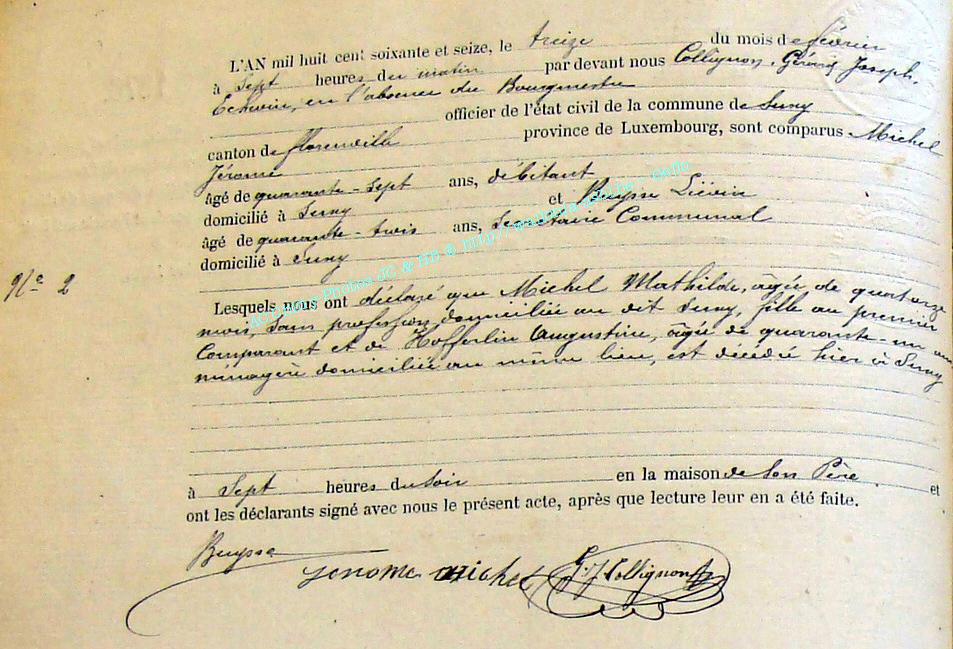 L'AN mil huit cent soixante et seize, le treize du mois de février
à Sept heures du matin par devant nous Collignon, Gérard Joseph,
Echevin, en l'absence du Bourgmestre
officier de l'état civil de la commune de Suny
canton de florenville province de Luxembourg, sont comparus Michel
Jérome
âgé de quarante-sept ans, débitant
domicilié à Suny et Buysse Liévin
âgé de quarante-trois ans, Secrétaire Communal
domicilié à Suny
N° 2
Lesquels nous ont déclaré que Michel Mathilde, âgée de quatorze
mois, sans profession, domiciliée au dit Suny, fille au premier
Comparant et de Hofferlin Augustine, âgée de quarante-un ans
ménagère domiciliée au même lieu, est décédée hier à Suny
à Sept heures du soir en la maison de son Père et
ont les déclarants signé avec nous le présent acte, après que lecture leur en a été faite.
Buysse
Jerome Michel
G. J. Collignon